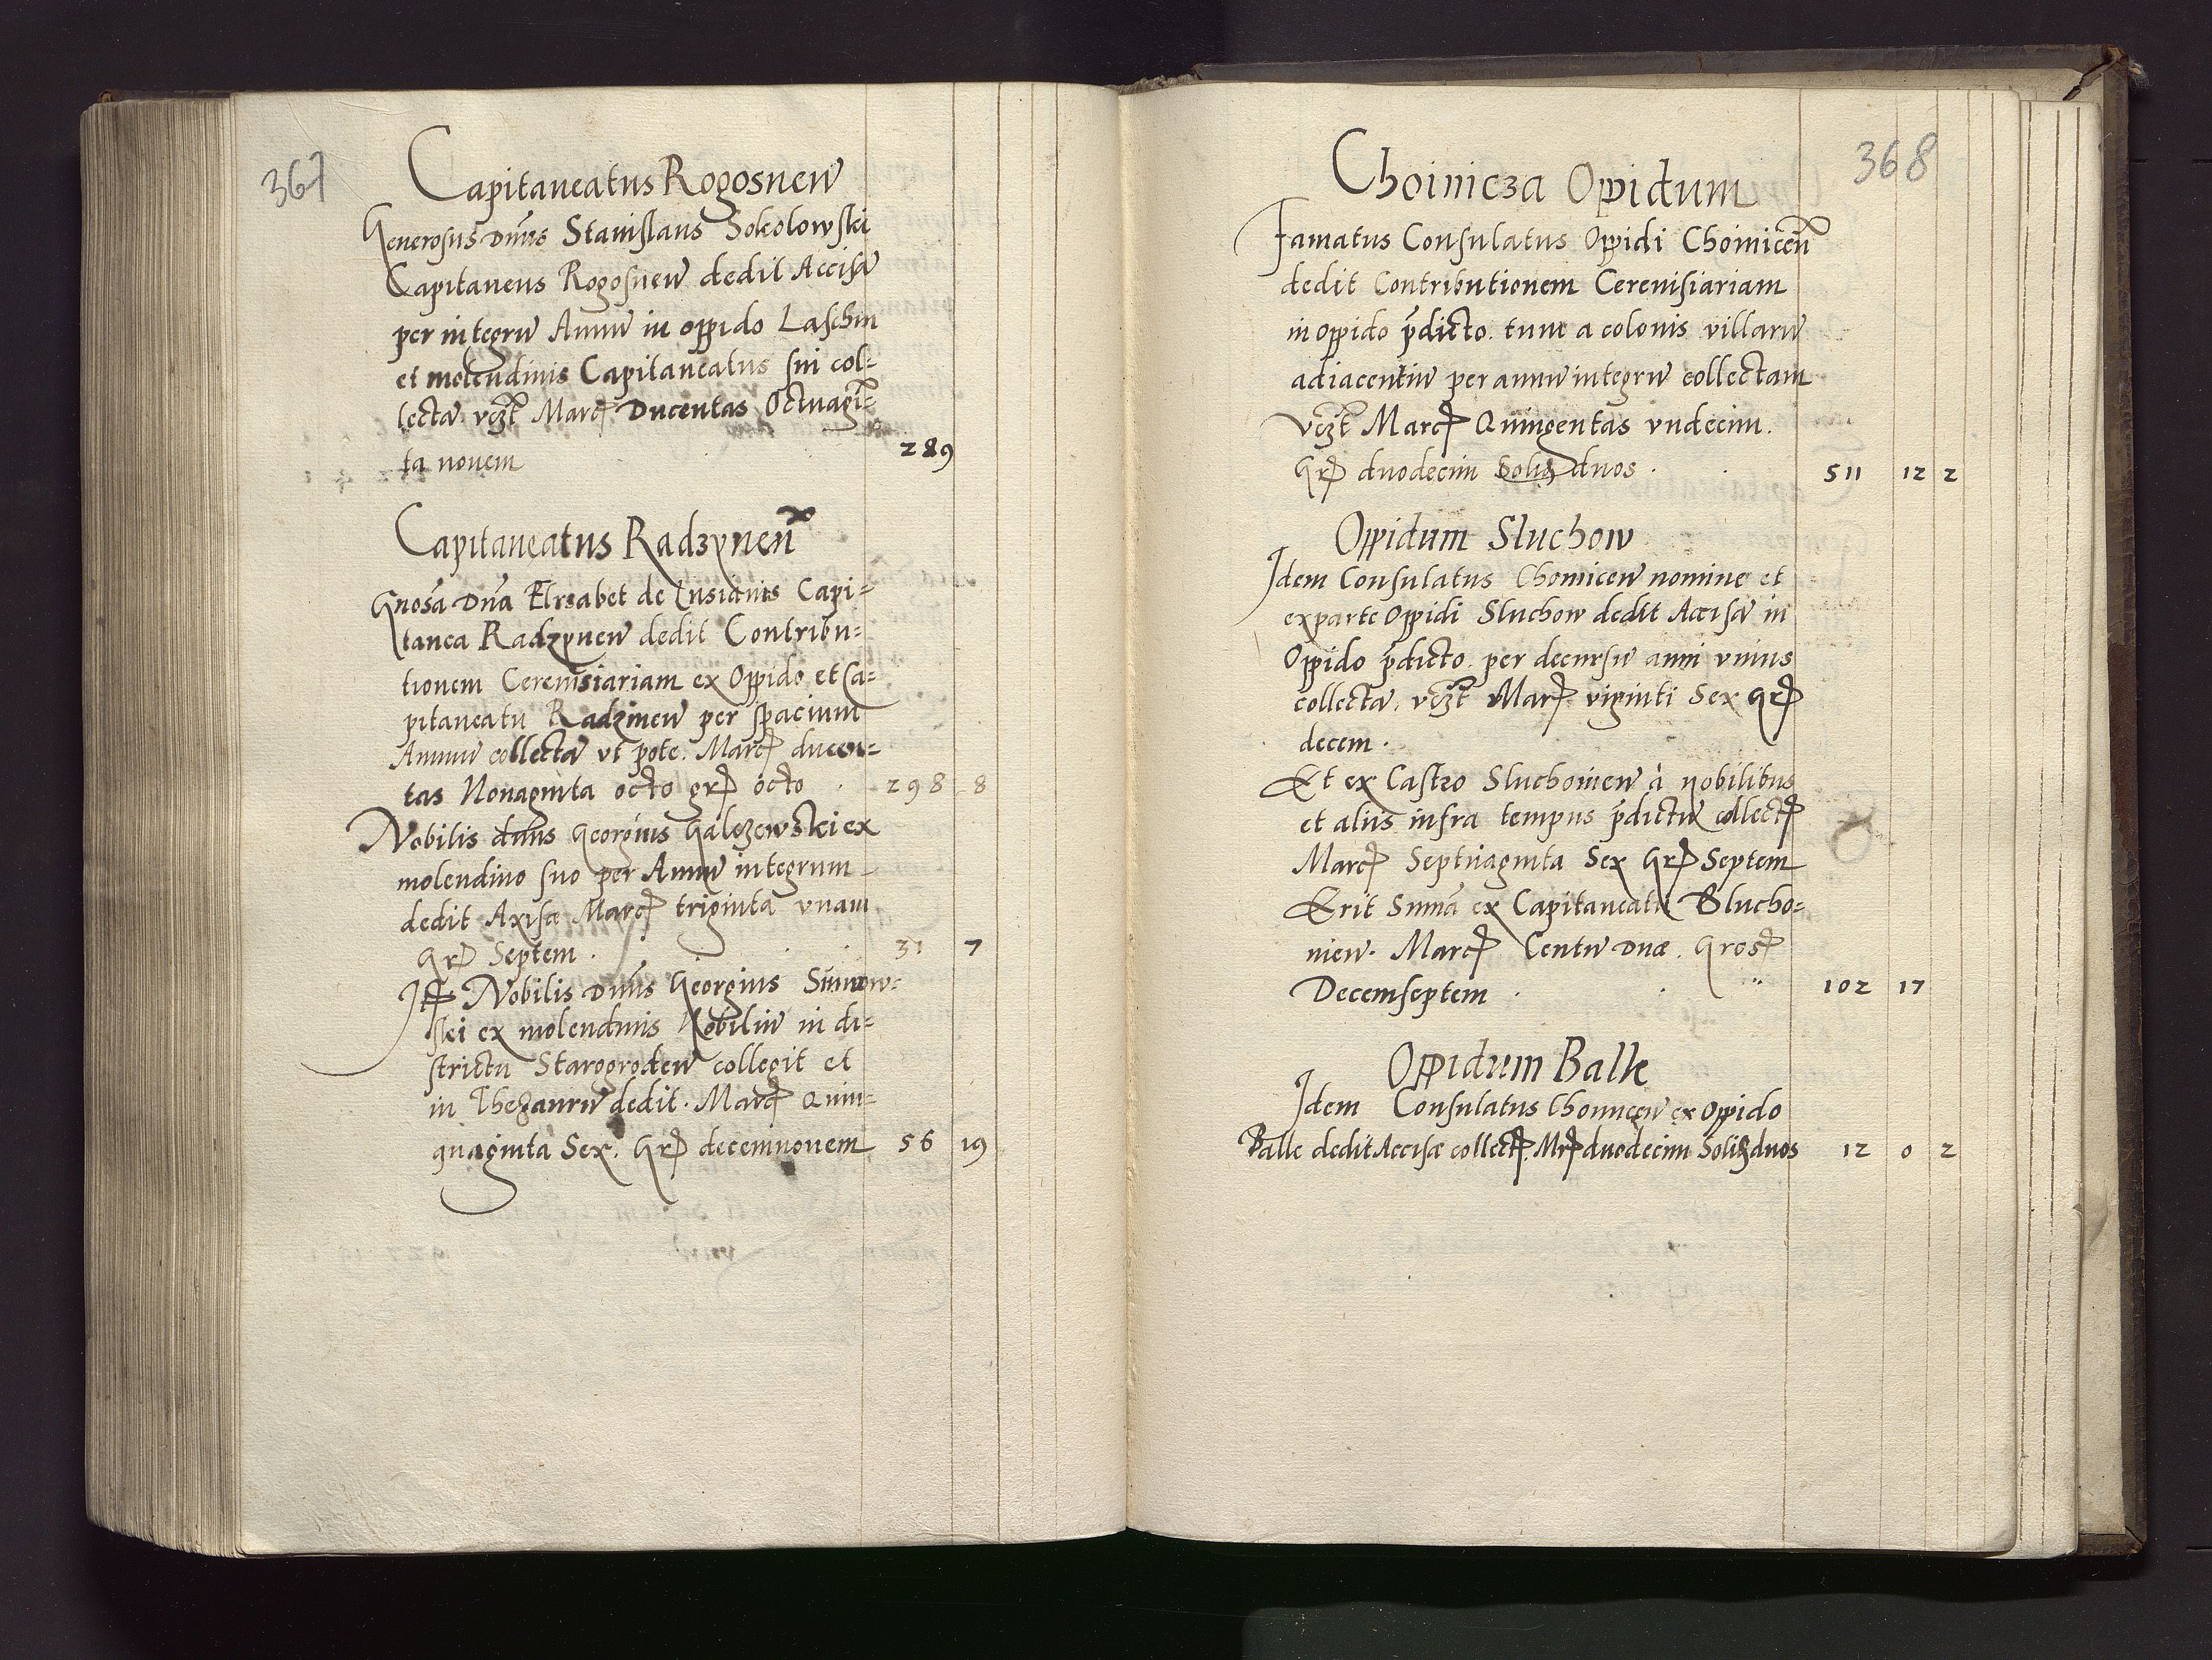 367
Capitaneatus Rogosnen̄
Generosus Dn̄us Stanislaus Sokolowski
Capitaneus Rogosnen̄ dedit Accisā
per integrū Annū in oppido Laschin
et molendinis Capitaneatus sui col=
lectā. vʒt Març Ducentas Octuagī=
ta novem 289
Capitaneatus Radzynen̄
Gnosa Dn̄a Elisabet de Lusianis Capi=
tanea Radzynen̄ dedit Contribu=
tionem Cerevisiariam ex Oppido et Ca=
pitaneatu Radzinen̄ per spacium
Annuū collectā ut pote. Març ducen=
tas Nonaginta octo grꝭ octo 298 8
Nobilis dn̄us Georgius Galczewski ex
molendino suo per Annū integrum
dedit Axisæ Març triginta unam
Grꝭ Septem. 31 7
Itꝭ Nobilis Dn̄us Georgius
ski ex molendinis Nobiliū in di=
strictu Starogroden̄ collegit et
in Thezaurū dedit. Març Quin=
quaginta Sex. Grꝭ decemnovem 56 19
368
Choinicza Oppidum
Famatus Consulatus Oppidi Choinicen̄
dedit Contributionem Cerevisiariam
in oppido p̄dicto. tum a colonis villarū
adiacentiū per annū integrū collectam
vʒt Març Quingentas undecim.
Grꝭ duodecim Solidꝭ duos. 511 12 2
Oppidum Sluchow
Idem Consulatus Choinicen̄ nomine et
ex parte Oppidi Sluchow dedit Accisā in
Oppido p̄dicto. per decursū anni unius
collectā. vʒt Març viginti Sex Grꝭ
decem.
Et ex Castro Sluchovien̄ à nobilibus
et aliis infra tempus p̄dictū collectꝭ
Març Septuaginta Sex Grꝭ Septem
Erit Summā ex Capitaneatu Slucho=
vien̄. Març Centū Duæ. Grosꝭ
Decemseptem 102 17
Oppidum Balle
Idem Consulatus Choinicen̄ ex Oppido
Balle dedit Accisæ collectꝭ. Mrꝭ duodecim Solidꝭ duos 12 0 2